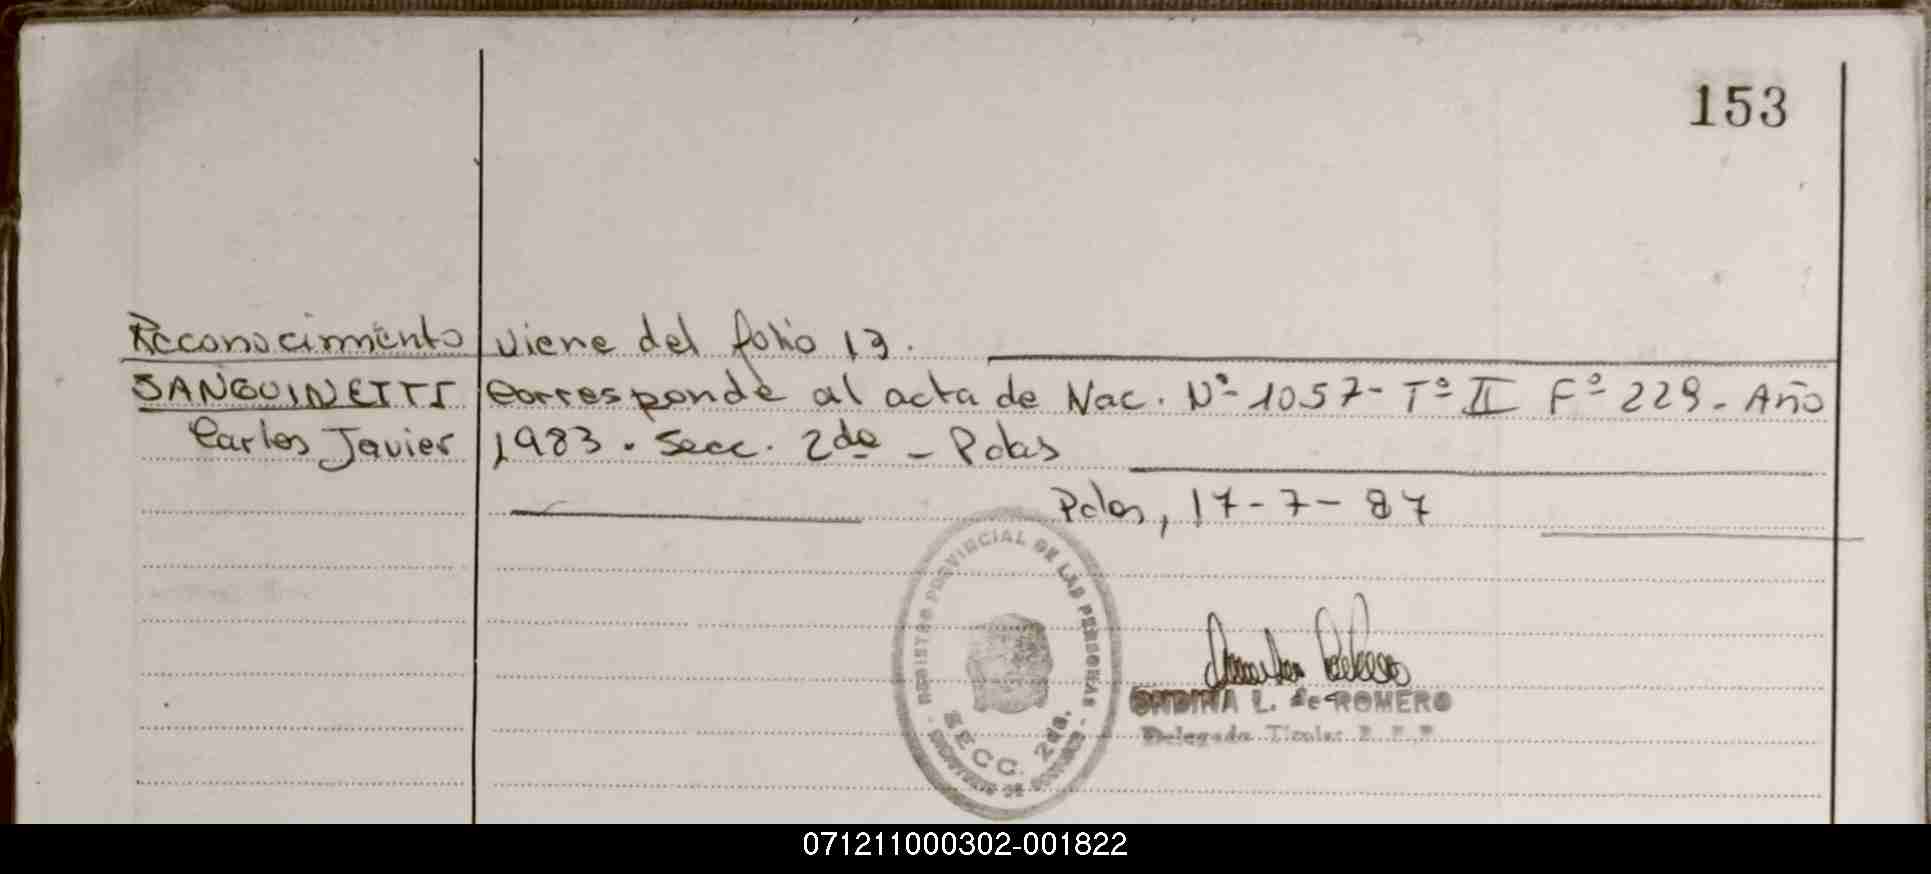 153
Reconocimiento viene del folio 19.
SANGUINETTI corresponde al acta de Nac. Nº 1057 - Tº II Fº 229 - Año
Carlos Javier 1983. Secc. 2da - Pdas
Pdas, 17-7-87
REGISTRO PROVINCIAL DE LAS PERSONAS
SECC. 2da.
ONDINA L. de ROMERO
Delegada Titular R. P. P.
071211000302-001822